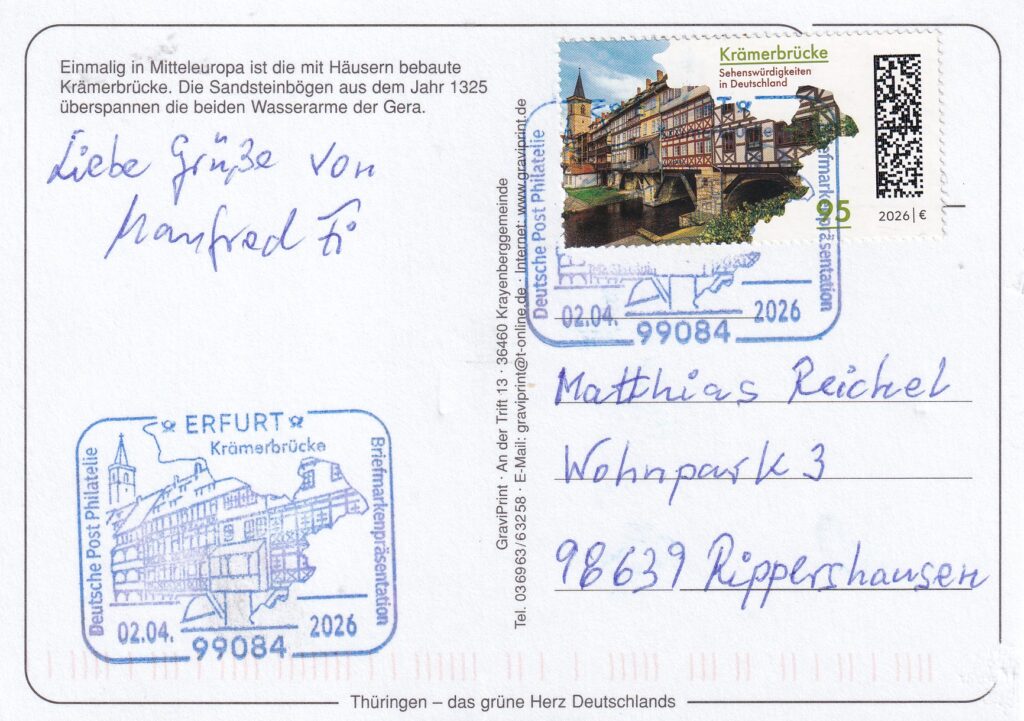 Einmalig in Mitteleuropa ist die mit Häusern bebaute
Krämerbrücke. Die Sandsteinbögen aus dem Jahr 1325
überspannen die beiden Wasserarme der Gera.
Liebe Grüße von
Manfred
GraviPrint · An der Trift 13 · 36460 Krayenberggemeinde
Tel. 036963/63258 · E-Mail: graviprint@t-online.de · Internet: www.graviprint.de
Krämerbrücke
Sehenswürdigkeiten
in Deutschland
95
2026 | €
Deutsche Post Philatelie
Briefmarkenpräsentation
02.04. 2026
99084
Matthias Reichel
Wohnpark 3
98639 Rippershausen
ERFURT
Krämerbrücke
Deutsche Post Philatelie
Briefmarkenpräsentation
02.04. 2026
99084
Thüringen – das grüne Herz Deutschlands